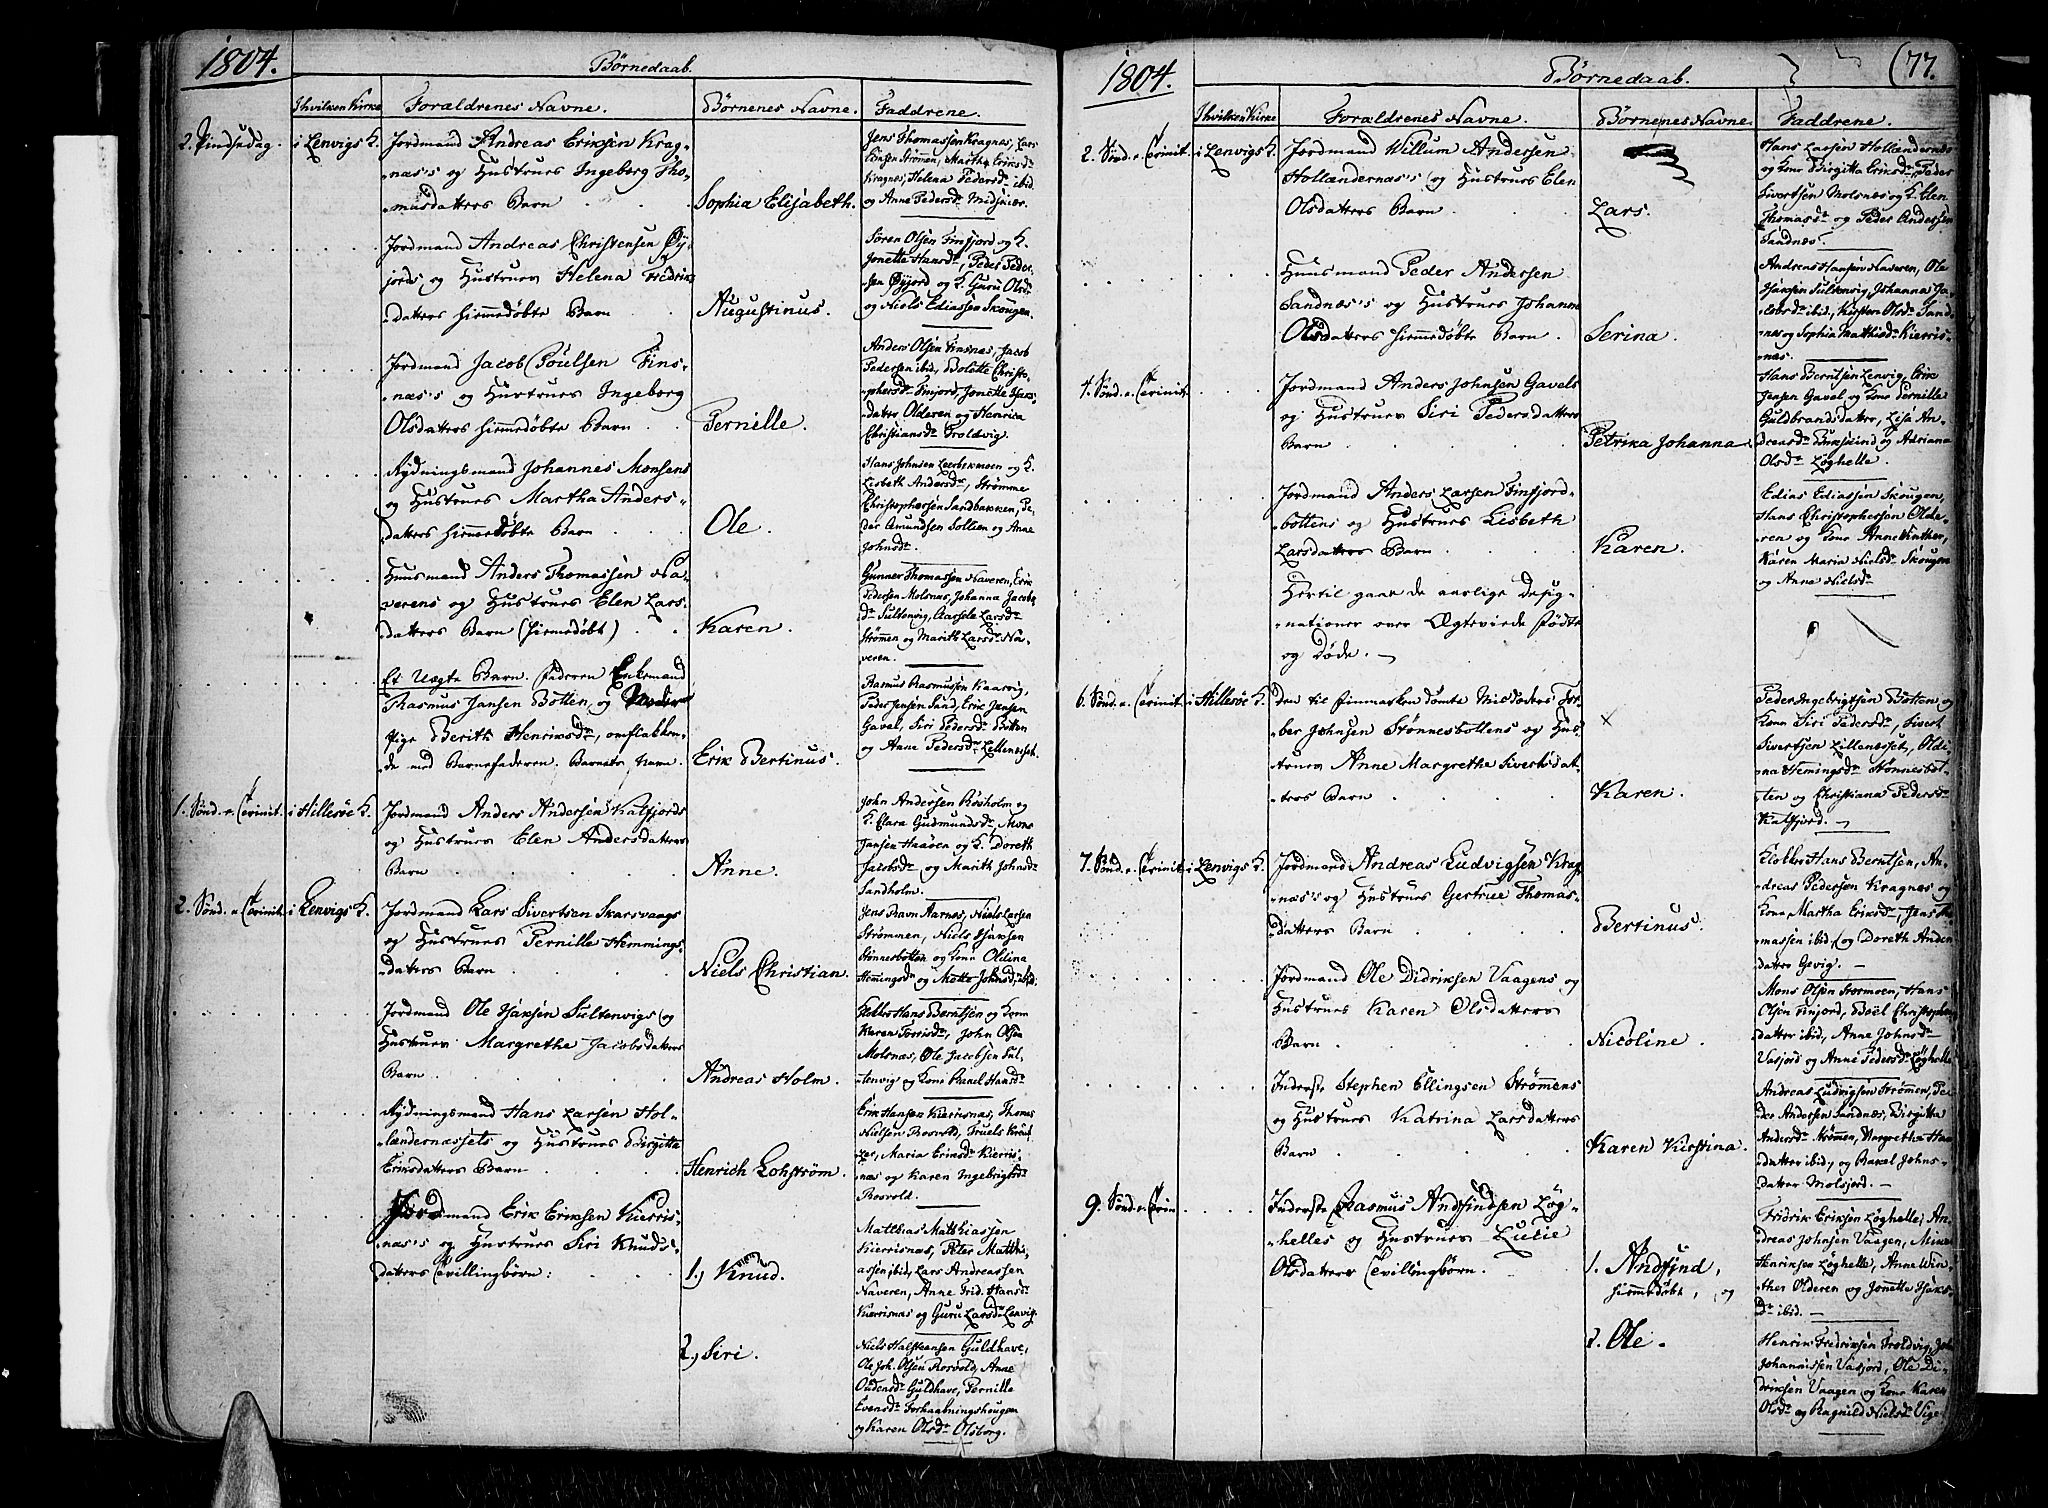 1804.
Børnedaab.
I hvilken Kirke
Forældrenes Navne.
Børnenes Navne.
Faddrene.
2. Pindsedag.
i Lenvigs K.
Jordmand Andreas Eriksen Krag-
næs's og Hustrues Ingeborg Tho-
masdatters Barn
Sophia Elisabeth.
Jens Thomassen Kragnes, Lars
Strømen, Martha Eriksd.
Kragnes, Helena Pedersd. ibid.
og Anne Pedersd.
Jordmand Andreas Christensen Øy-
jords og Hustrues Helena Fredriks
datters hiemmedøbte Barn
Augustinus.
Søren Olsen Finfjord og K.
Jonette Hansd., Peder Peder-
sen Øyjord og K. Guru Olsd.
og Niels Ediassen Skougen.
Jordmand Jacob Poulsen Fins-
næs's og Hustrues Ingeborg
Olsdatters hiemmedøbte Barn
Pernille.
Anders Olsen Finsnæs, Jacob
Pedersen ibid, Bolette Christo-
phersd. Finjord, Jonette Isaks-
datter Olderen og Henrica
Christiansd. Troldvig.
Rydningsmand Johannes Monsens
og Hustrues Martha Anders-
datters hiemmedøbte Barn
Ole.
Hans Johnsen Leerbekmoen og K.
Lisbeth Andersd., Strømme
Christophersen Sandbakken, Pe-
der Amundsen Sollien og Anne
Johnsd.
Huusmand Anders Thomassen Na-
verens og Hustrues Elen Lars-
datters Barn (hiemmedøbt)
Karen.
Gunner Thomassen Naveren, Erik
Pedersen Molsnæs, Johanna Jacobs
d. Sultenvig, Aarsele Larsd.
Strømmen og Marith Larsd. Na-
veren.
Et Uægte Barn. Faderen Enkemand
Rasmus Jansen Botten, og
pige Berith Henriksd.,
de med Barnefaderen. Barnets Navn.
Erik Bertinus.
Rasmus Rasmussen Kaarvig,
Peder Jensen Sand, Eric Jensen
Gavel, Siri Pedersd. Botten
og Anne Pedersd. Lillenesset.
1. Sønd. e. Trinit.
i Hillesøe K.
Jordmand Anders Andersen Kalfjords
og Hustrues Elen Andersdatters
Barn
Anne.
John Andersen Røsholm og
K. Clara Gudmundsd., Mons
Jansen Haaøen og K. Doreth
Jacobsd. og Marith Johnsd.
Sandholm.
2. Sønd. e. Trinit.
i Lenvigs K.
Jordmand Lars Sivertsen Skarsvaags
og Hustrues Pernille Hemmings
datters Barn
Niels Christian.
Jens Ravn Aarnes, Niels Larsen
Strømmen, Niels Isaksen
Stønnesbotten og Kone Oldina
Hemmingsd. og Mette Johnsd. ibid.
Jordmand Ole Isaksen Sultenvigs og
Hustrues Margrethe Jacobsdatters
Barn
Andreas Holm.
Klokker Hans Berntsen og Kone
Karen Torrisd., John Olsen
Molsnæs, Ole Jacobsen Sul-
tenvig og Kone Rakel Hansd.
Rydningsmand Hans Larsen Hol-
lændernæssets og Hustrues Birgitte
Eriksdatters Barn
Henrich Lohström.
Erik Hansen Kierrisnæs, Thomas
Nielsen Rosvold, Truels Knud
Maria Eriksd. Kierris-
næs og Karen Ingebrigtsd.
Rosvold.
Jordmand Erik Eriksen Kierris-
næs's og Hustrues Siri Knuds-
datters Tvillingbørn:
1.) Knud.
Matthias Matthiassen
Kierrisnæs, Peter Matthi-
assen ibid, Lars Andreassen
Naveren, Anne Frid. Hansd.
Kierrisnæs og Guru Larsd. Lenvig.
2.) Siri.
Niels Halsteensen Guldhave,
Ole Joh. Olsen Rosvold, Anne
Oudensd. Guldhave, Pernille
Evensd. Forhaabningshougen
og Karen Olsd. Olsborg.
1804.
Børnedaab.
(77.
I hvilken Kirke
Forældrenes Navne.
Børnenes Navne.
Faddrene.
2. Sønd. e. Trinit.
i Lenvigs K.
Jordmand Willum Andersen
Hollændernæs's og Hustrues Elen
Olsdatters Barn
Lars.
Hans Larsen Hollændernæs
og Kone Birgitta Eriksd., Peder
Sivertsen Molsnæs og K. Elen
Thomasd. og Peder Andersen
Sandnæs.
Huusmand Peder Andersen
Sandnæs's og Hustrues Johanne
Olsdatters hiemmedøbte Barn
Serina.
Andreas Hansen Naveren, Ole
Isaksen Sultenvig, Johanna Ja-
cobsd. ibid, Kirsten Olsd. Sand-
næs og Sophia Matthisd. Kierris-
næs.
4. Sønd. e. Trinit.
Jordmand Anders Johnsen Gavels
og Hustrues Siri Pedersdatters
Barn
Petrika Johanna.
Hans Berntsen Lenvig, Erik
Jensen Gavel og Kone Pernille
Guldbrandsdatter, Lisa An-
dreasd. og Adriana
Olsd. Løghelle.
Jordmand Anders Larsen Finfjord-
bottens og Hustrues Lisbeth
Larsdatters Barn
Karen.
Edias Ediassen Skougen,
Hans Christophersen Olde-
ren og Kone Anne Winther,
Karen Maria Nielsd. Skougen
og Anne Nielsd.
Hertil gaar de aarlige Desig-
nationer over Ægteviede Fødte
og Døde. –
6. Sønd. e. Trinit.
i Hillesøe K.
Den til Finmarken dømte Misdæders Tor-
ber Johnsen Stønnesbottens og Hus-
trues Anne Margrethe Sivertsdat-
ters Barn
×
Karen.
Peder Ingebrigtsen Botten og
Kone Siri Pedersd., Sivert
Sivertsen Lillenesset, Oldi-
na Hemingsd. Stønnesbot-
ten og Christiana Pedersd.
Kalfjord. –
7. Sønd. e. Trinit.
i Lenvigs K.
Jordmand Andreas Ludvigsen Krag-
næs's og Hustrues Gertrue Thomas-
datters Barn
Bertinus.
Klokker Hans Berntsen, An-
dreas Pedersen Kragnæs og
Kone Martha Eriksd., Jens Tho-
massen ibid, og Doreth Anders
datter Gevig. –
Jordmand Ole Didriksen Vaagens og
Hustrues Karen Olsdatters
Barn
Nicoline.
Mons Olsen Stormoen, Hans
Olsen Finjord, Boel Christophers
datter ibid, Anne Johnsd.
Vasjord og Anne Pedersd. Løghelle
Inderste Stephen Ellingsen Strømmens
og Hustrues Katrina Larsdatters
Barn
Karen Kirstina.
Andreas Ludvigsen Strømmen, Pe-
der Andersen Sandnæs, Birgitta
Andersd. Strømmen, Margrethe Hans
datter ibid, og Rakel Johns-
datter Molsjord. –
9. Sønd. e. Trin.
Inderste Rasmus Andfindsen Løg-
helles og Hustrues Lucie
Olsdatters Tvillingbørn.
1. Andfind,
hiemmedøbt, og
Fridrik Eriksen Løghelle, An-
dreas Johnsen Vaagen,
Henriksen Løghelle, Anne Win-
ther Olderen og Jonette Isaks-
d. ibid. –
2. Ole.
Henrik Fredriksen Troldvig, John
Johannissen Vasjord, Ole Di-
driksen Vaagen og Kone Karen
Olsd. og Ragnild Nielsd.